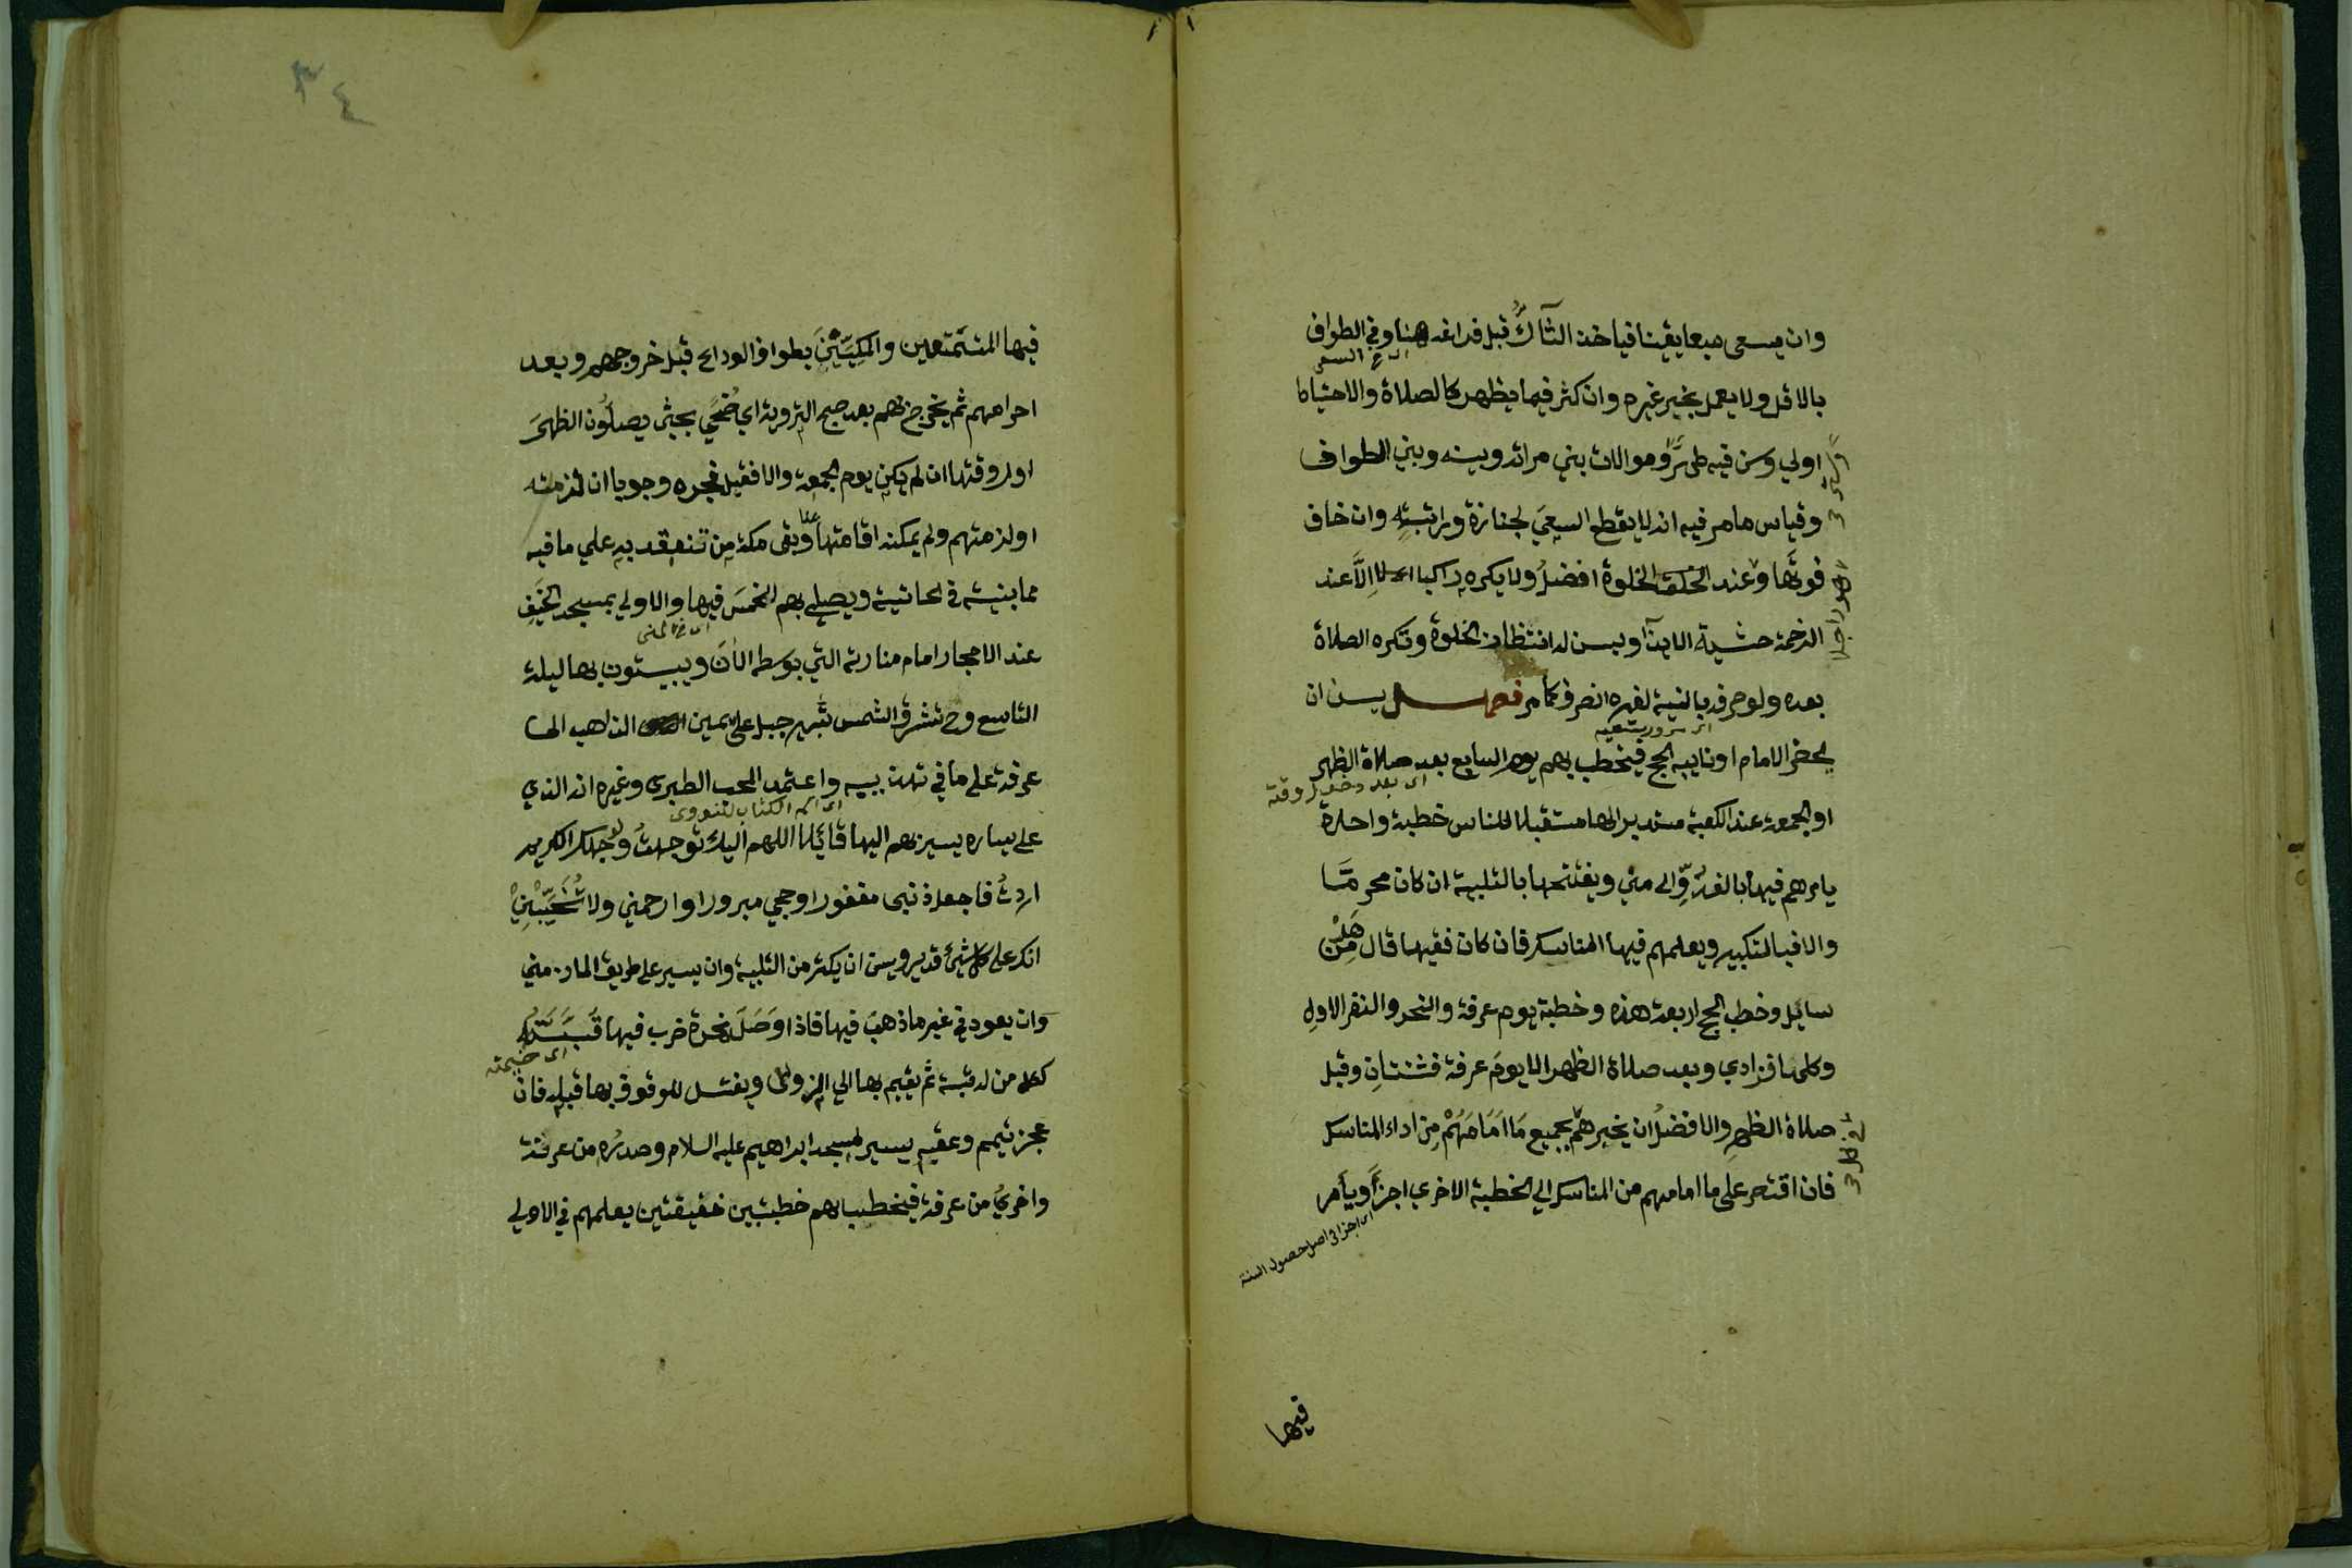 وان يسعى سبعا يقينا فياخذ الشاك قبل فراغه هنا وفي الطواف
اي السعي
بالاقل ولا يعمل بخبر غيره وان كثر فيما يظهر كالصلاة والاحتياط
اولي وسن فيه طهر وموالات بين مراته وبينه وبين الطواف
وقياس ما مر فيه انه لا يقطع السعي لجنازة وراتبة وان خاف
فوتها وعند الخلوة افضل ولا يكره راكبا الا عند
الزحمة خشية الايذا ويسن له انتظار الخلوة وتكره الصلاة
بعده ولو صرفه بالنية لغيره انصرف كما مر فصل يسن ان
يحضر الامام او نايبه الحج فيخطب بهم يوم السابع بعد صلاة الظهر
اي بعد دخول وقته
او الجمعة عند الكعبة مستدبرا لها مستقبلا للناس خطبة واحدة
يامرهم فيها بالغدو الى منى ويفتتحها بالتلبية ان كان محرما
والا فبالتكبير ويعلمهم فيها المناسك فان كان فقيها قال هل من
سايل وخطب الحج اربعة هذه وخطبة يوم عرفة والنحر والنفر الاول
وكلها فرادي وبعد صلاة الظهر الا يوم عرفة فثنتان وقبل
صلاة الظهر والافضل ان يخبرهم بجميع ما امامهم من اداء المناسك
فان اقتصر على ما امامهم من المناسك الى الخطبة الاخرى اجزأ ويأمر
اي اجزا في اصل حصول السنة
فيها
٣٤
فيها المتمتعين والمكيين بطواف الوداع قبل خروجهم وبعد
احرامهم ثم يخرج بهم بعد صبح التروية اي ضحى بحيث يصلون الظهر
اول وقتها ان لم يكن يوم الجمعة والا فقبيل فجره وجوبا ان لزمته
او لزمتهم ولم يمكنه اقامتها وبقى مكة من تنعقد به على ما فيه
مما بينته في الحاشية ويصلي بهم الخمس فيها والاولي بمسجد الخيف
اي في منى
عند الاحجار امام منارته التي بوسطه الان ويبيتون بها ليلة
التاسع وح تشرق الشمس ثبير جبل على يمين الذاهب الى
عرفة على ما في تهذيبه واعتمد المحب الطبري وغيره انه الذي
اي اسم الكتاب للنووي
على يساره يسير بهم اليها قائلا اللهم اليك توجهت ولوجهك الكريم
اردت فاجعل ذنبي مغفورا وحجي مبرورا وارحمني ولا تخيبني
انك على كل شيئ قدير ويسن ان يكثر من التلبية وان يسير على طريق المازمين
وان يعود في غير ما ذهب فيها فاذا وصل نمرة ضرب فيها قبته
اي خيمته
كل من له قبة ثم يقيم بها الى الزوال ويغتسل للوقوف بها قبله فان
عجز تيمم وعقبه يسير لمسجد ابراهيم عليه السلام وصدره من عرنة
واخره من عرفة فيخطب بهم خطبتين خفيفتين يعلمهم في الاولي